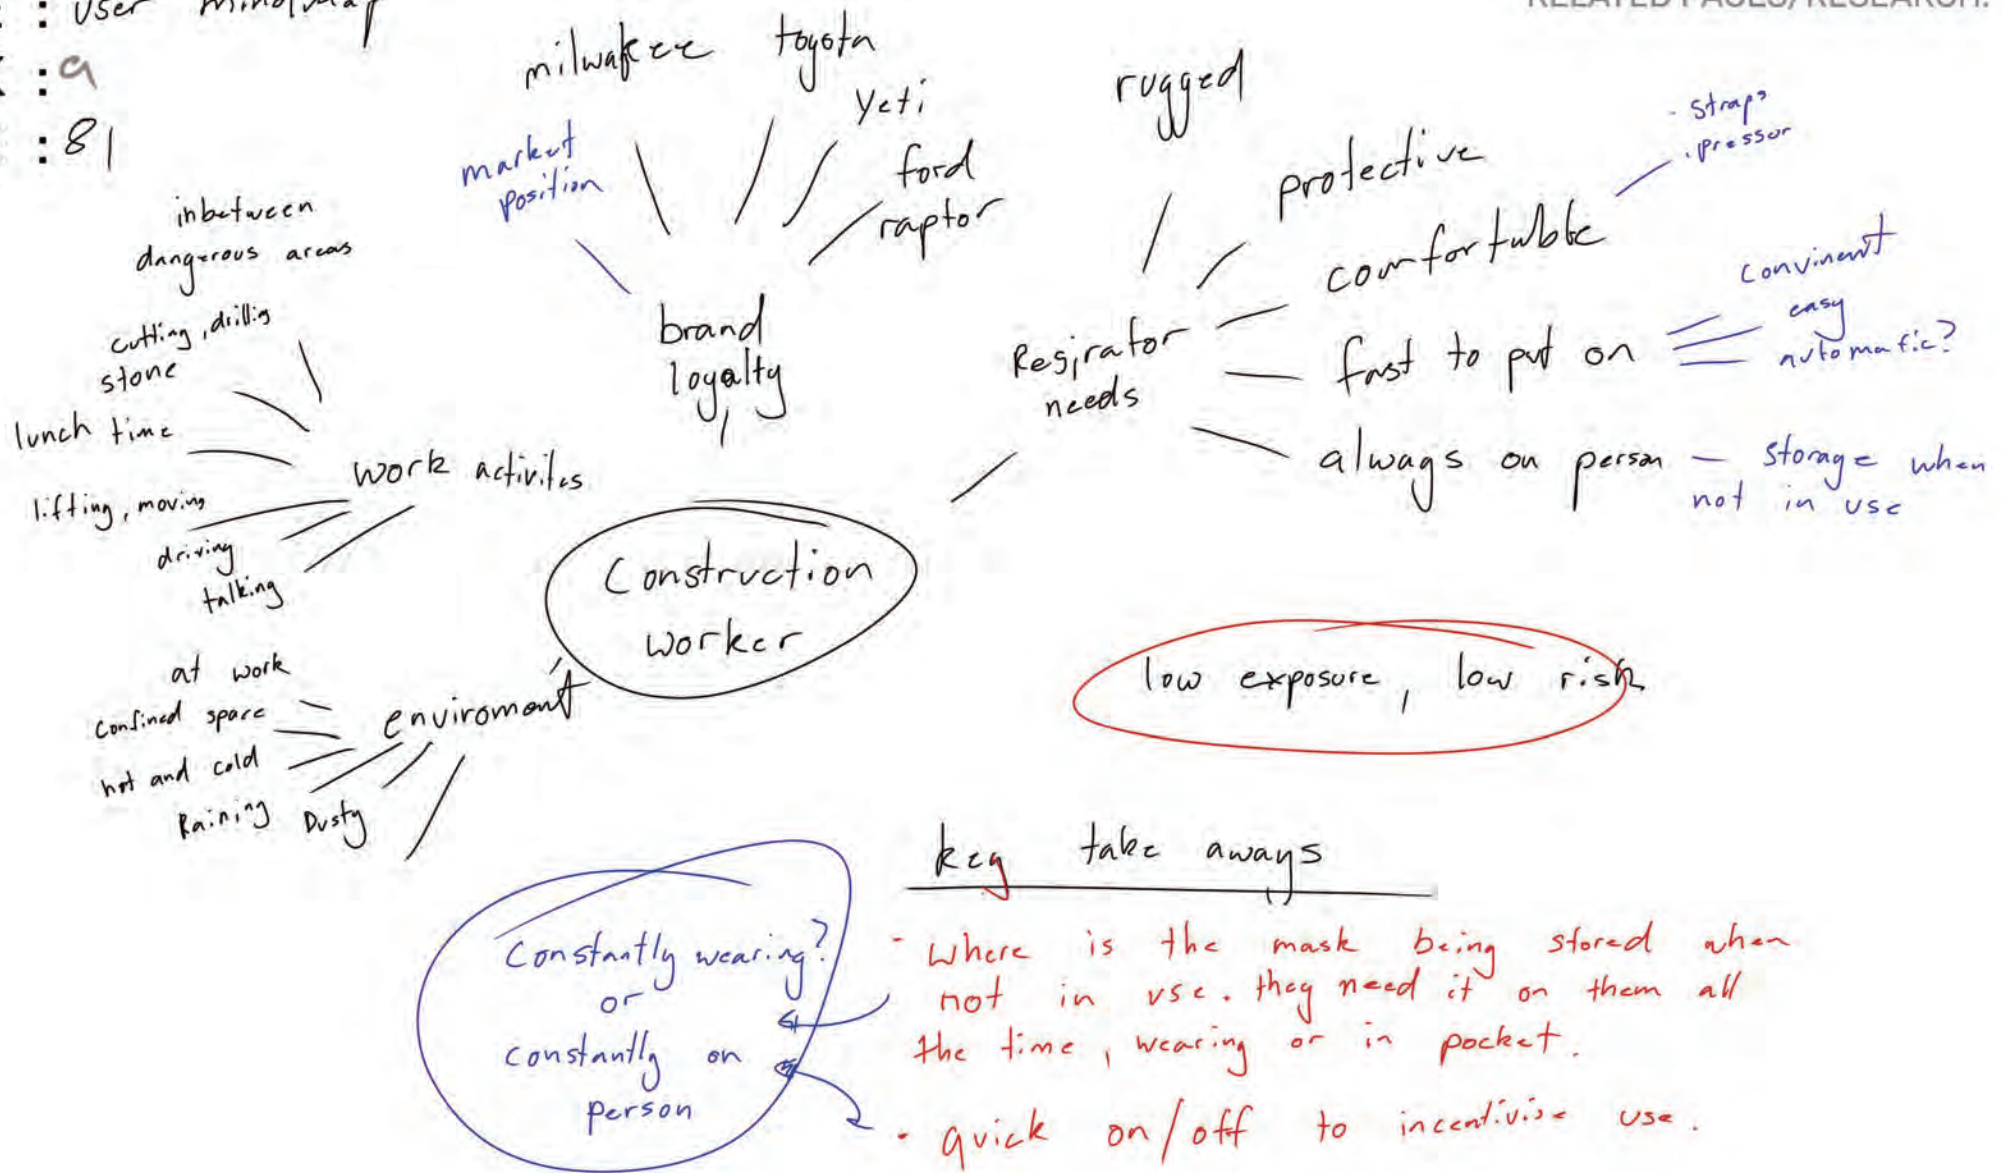 : User mindmap
RELATED PAGES/RESEARCH:
: a
: 81
milwakee
toyota
Yeti
ford
raptor
market
position
brand
loyalty
rugged
protective
comfortable
- straps
. pressur
fast to put on
convinent
easy
automatic?
always on person — storage when
not in use
Respirator
needs
inbetween
dangerous areas
cutting, drillig
stone
lunch time
lifting, moving
driving
talking
work activites
Construction
worker
at work
confined space
hot and cold
Raining
Dusty
enviroment
low exposure, low risk
key take aways
- where is the mask being stored when
not in use. they need it on them all
the time, wearing or in pocket.
- quick on/off to incentivise use.
Constantly wearing?
or
constantly on
person